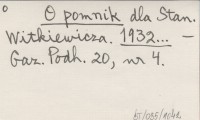 O pomnik dla Stan.
Witkiewicza. 1932... –
Gaz. Podh. 20, nr 4.